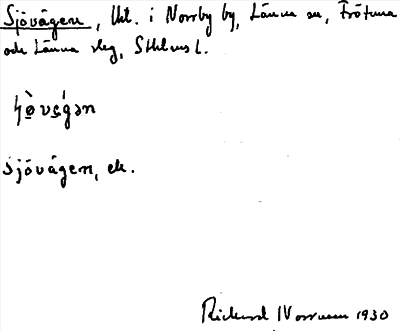 Sjövägen, Ukl. i Norrby by, Länna sn, Frötuna
och Länna slg, Sthlms l.
Sjövägen, ek.
Richard Norrman 1930